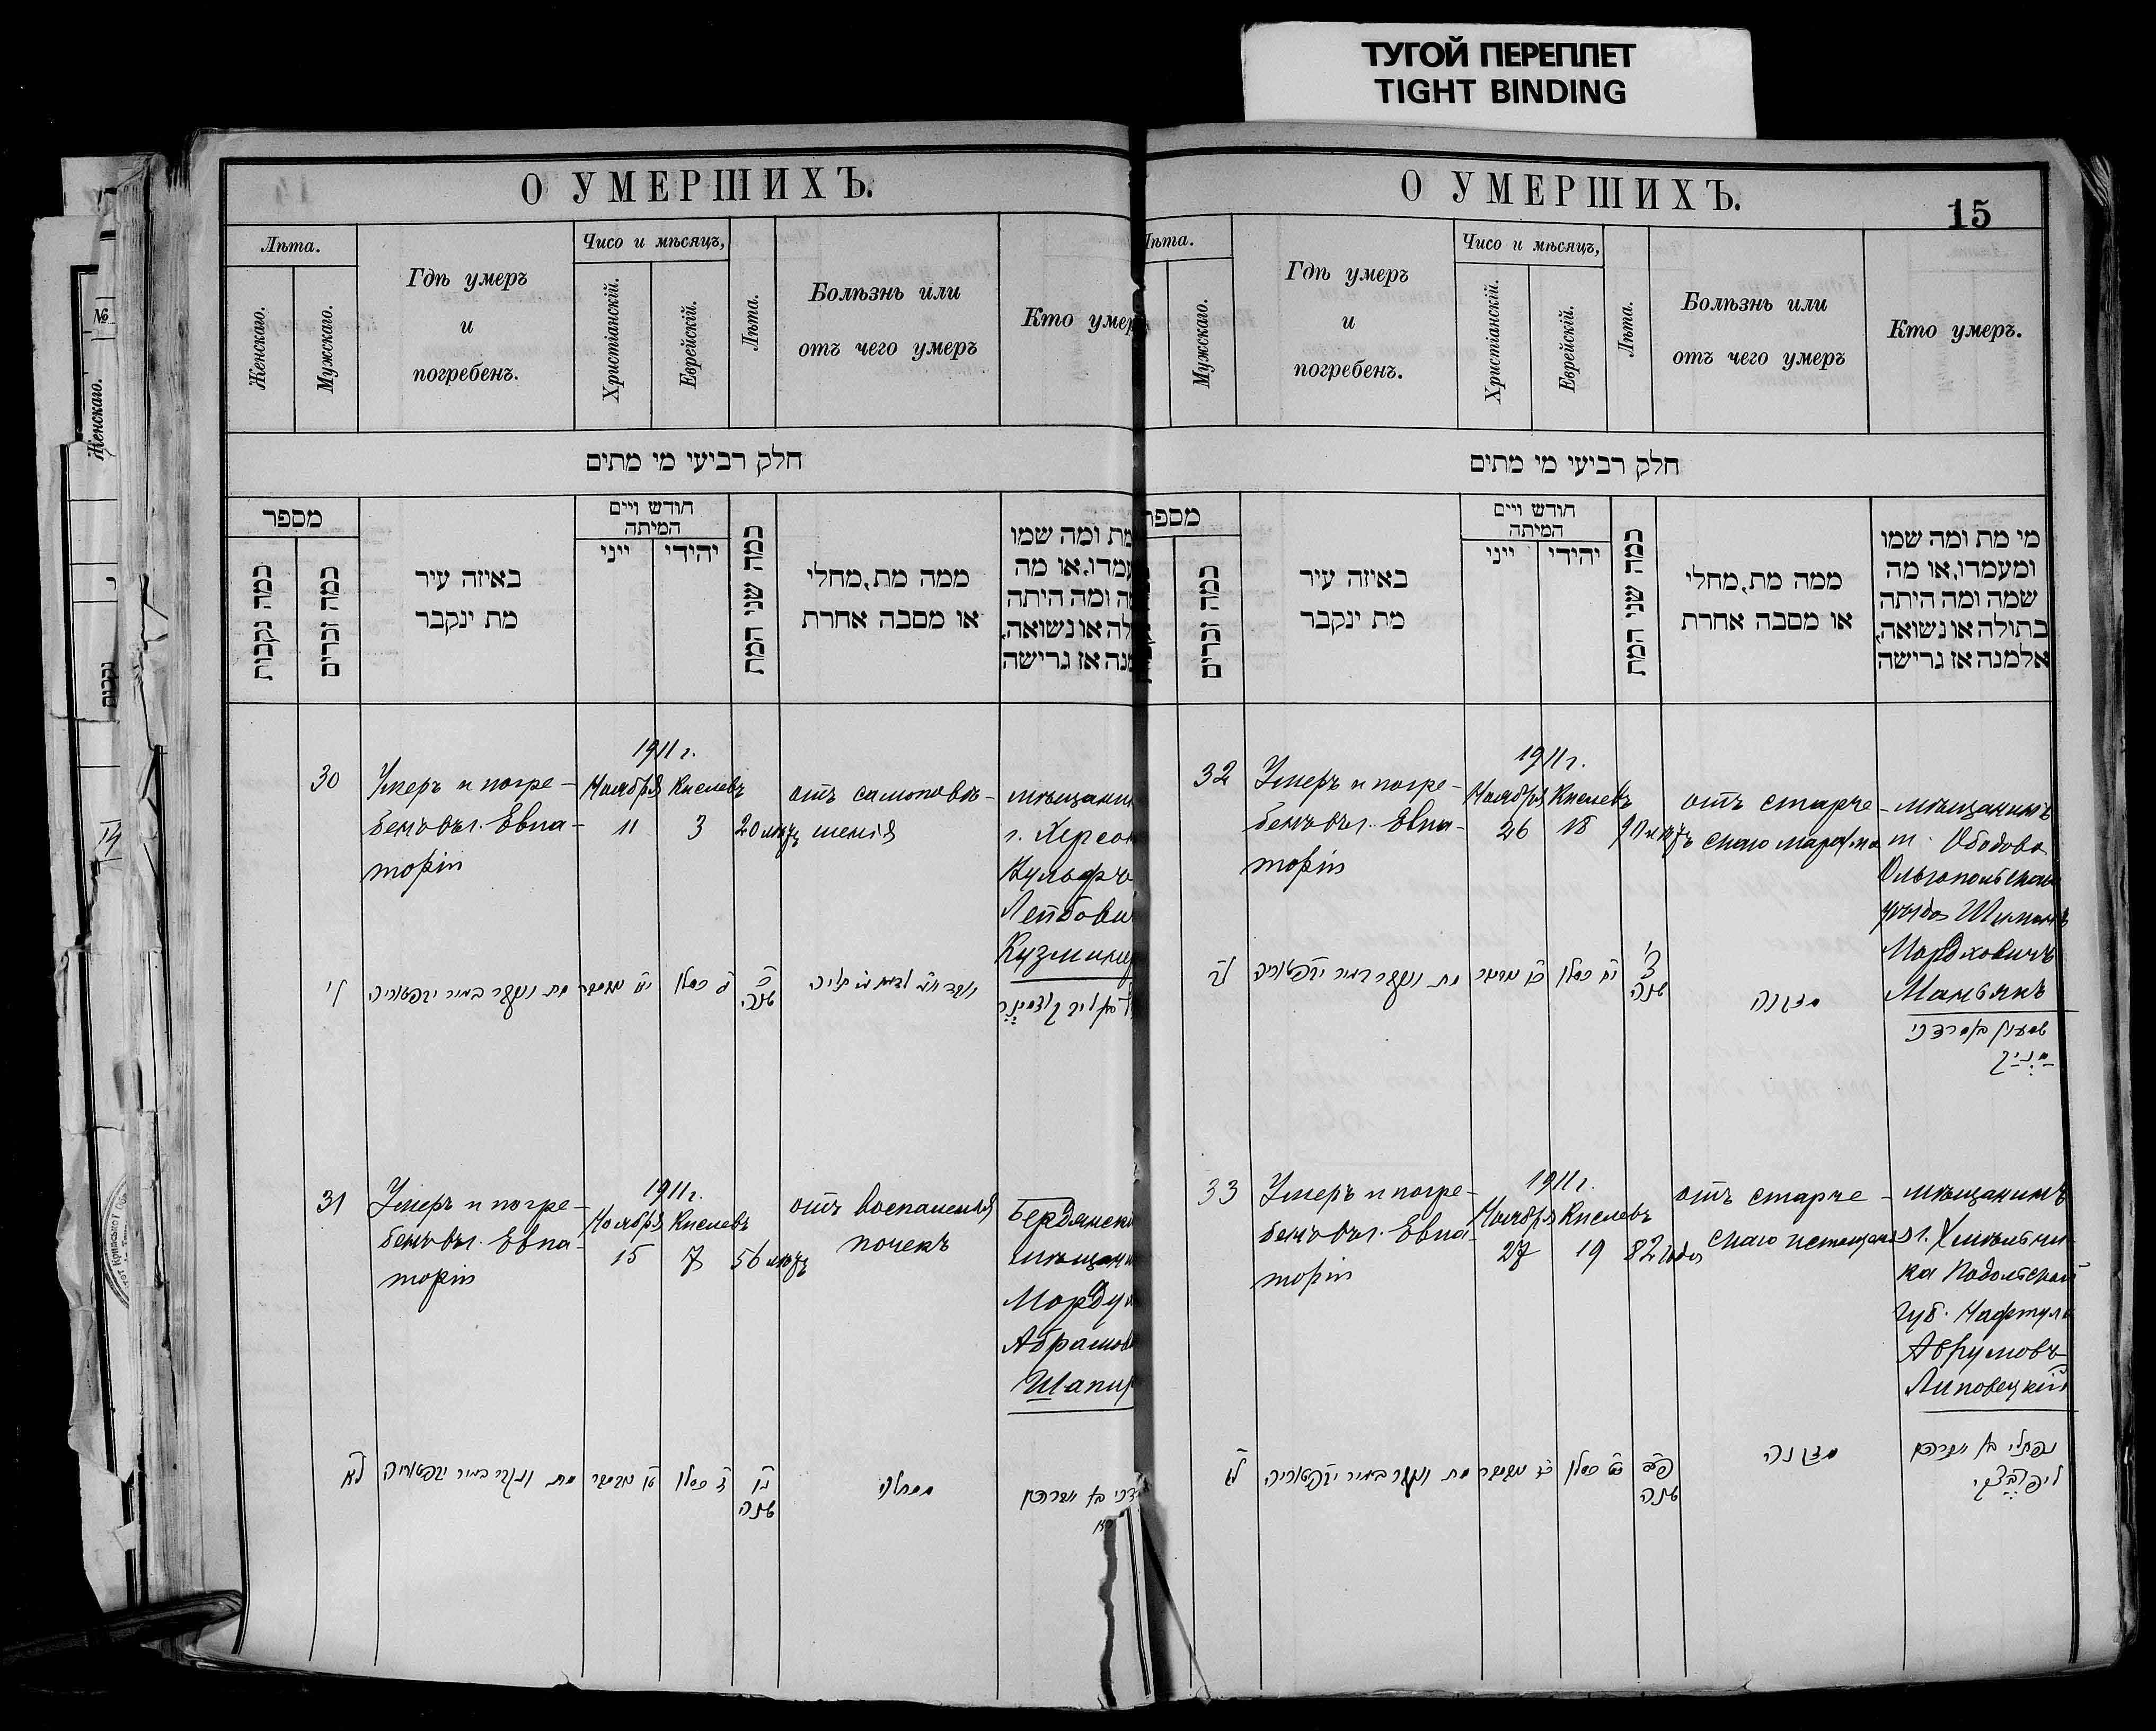 ТУГОЙ ПЕРЕПЛЕТ
TIGHT BINDING
О УМЕРШИХЪ.
Лѣта.
Женскаго.
Мужскаго.
Гдѣ умеръ
и
погребенъ.
Чисо и мѣсяцъ,
Христіанскій.
Еврейскій.
Лѣта.
Болѣзнь или
отъ чего умеръ
Кто умер
חלק רביעי מי מתים
מספר
כמה נקבות
כמה זכרים
באיזה עיר
מת ינקבר
חודש ויים
המיתה
ייני
יהידי
כמה שני המת
ממה מת, מחלי
או מסבה אחרת
מת ומה שמו
עמדו, או מה
ה ומה היתה
לה או נשואה,
מנה אז גרישה
30
Умеръ и погре-
бенъ въ г. Евпа-
торіи
1911 г.
Ноября Кислевъ
11 3
20 лѣтъ
отъ самоповѣ-
шенія
мѣщанин
г. Херсон
Вульфъ
Лейбови
Кузмини
ל׳
מת ונקבר בעיר יעפטוריה
כסלו
שנה
31
Умеръ и погре-
бенъ въ г. Евпа-
торіи
1911 г.
Ноября Кислевъ
15 7
56 лѣтъ
отъ воспаленія
почекъ
Бердянск
мѣщани
Морду
Абрамов
Шапир
לא
מת ונקבר בעיר יעפטוריה
כסלו
שנה
ממחלה
דכי בן אברהם
О УМЕРШИХЪ.
15
ѣта.
Мужскаго.
Гдѣ умеръ
и
погребенъ.
Чисо и мѣсяцъ,
Христіанскій.
Еврейскій.
Лѣта.
Болѣзнь или
отъ чего умеръ
Кто умеръ.
חלק רביעי מי מתים
מספר
כמה זכרים
באיזה עיר
מת ינקבר
חודש ויים
המיתה
ייני
יהידי
כמה שני המת
ממה מת, מחלי
או מסבה אחרת
מי מת ומה שמו
ומעמדו, או מה
שמה ומה היתה
בתולה או נשואה,
אלמנה אז גרישה
32
Умеръ и погре-
бенъ въ г. Евпа-
торіи
1911 г.
Ноября Кислевъ
26 18
90 лѣтъ
отъ старче-
скаго маразма
мѣщанинъ
м. Ободова
Ольгопольскаго
уѣзда Шимонъ
Мордковичъ
Маньякъ
לב
מת ונקבר בעיר יעפטוריה
יח כסלו
צ׳
שנה
מזקנה
שמעון בן מרדכי
מניק
33
Умеръ и погре-
бенъ въ г. Евпа-
торіи
1911 г.
Ноября Кислевъ
27 19
82 года
отъ старче-
скаго истощенія
мѣщанинъ
г. Хмѣльни-
ка Подольской
губ. Нафтула
Аврумовъ
Липовецкій
לג
מת ונקבר בעיר יעפטוריה
יט כסלו
פב
שנה
מזקנה
נפתלי בן אברהם
ליפאבצקי